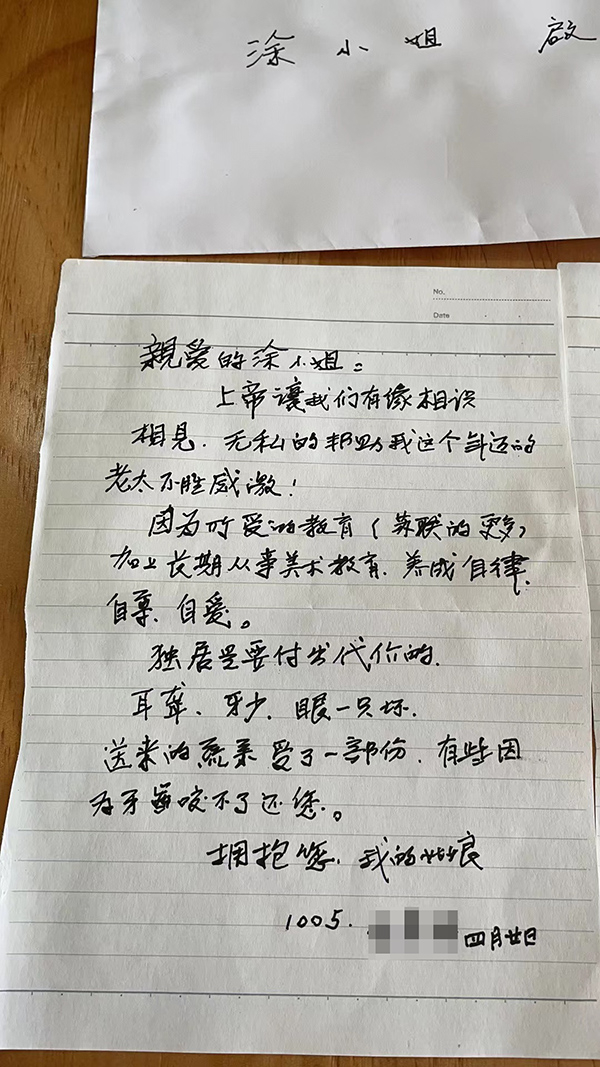 涂小姐 啟
No.
Date
親爱的涂小姐：
上帝讓我们有缘相识
相見．无私的邦助我这个年迈的
老太不胜感激！
因为所受的教育（苏联的更多）
加上长期从事美术教育．养成自律．
自尊．自爱。
独居是要付出代价的．
耳聋、牙少．眼一只坏．
送来的蔬菜受了一部份．有些因
为牙齒咬不了还您。
拥抱您．我的姑娘
1005． 四月廿日